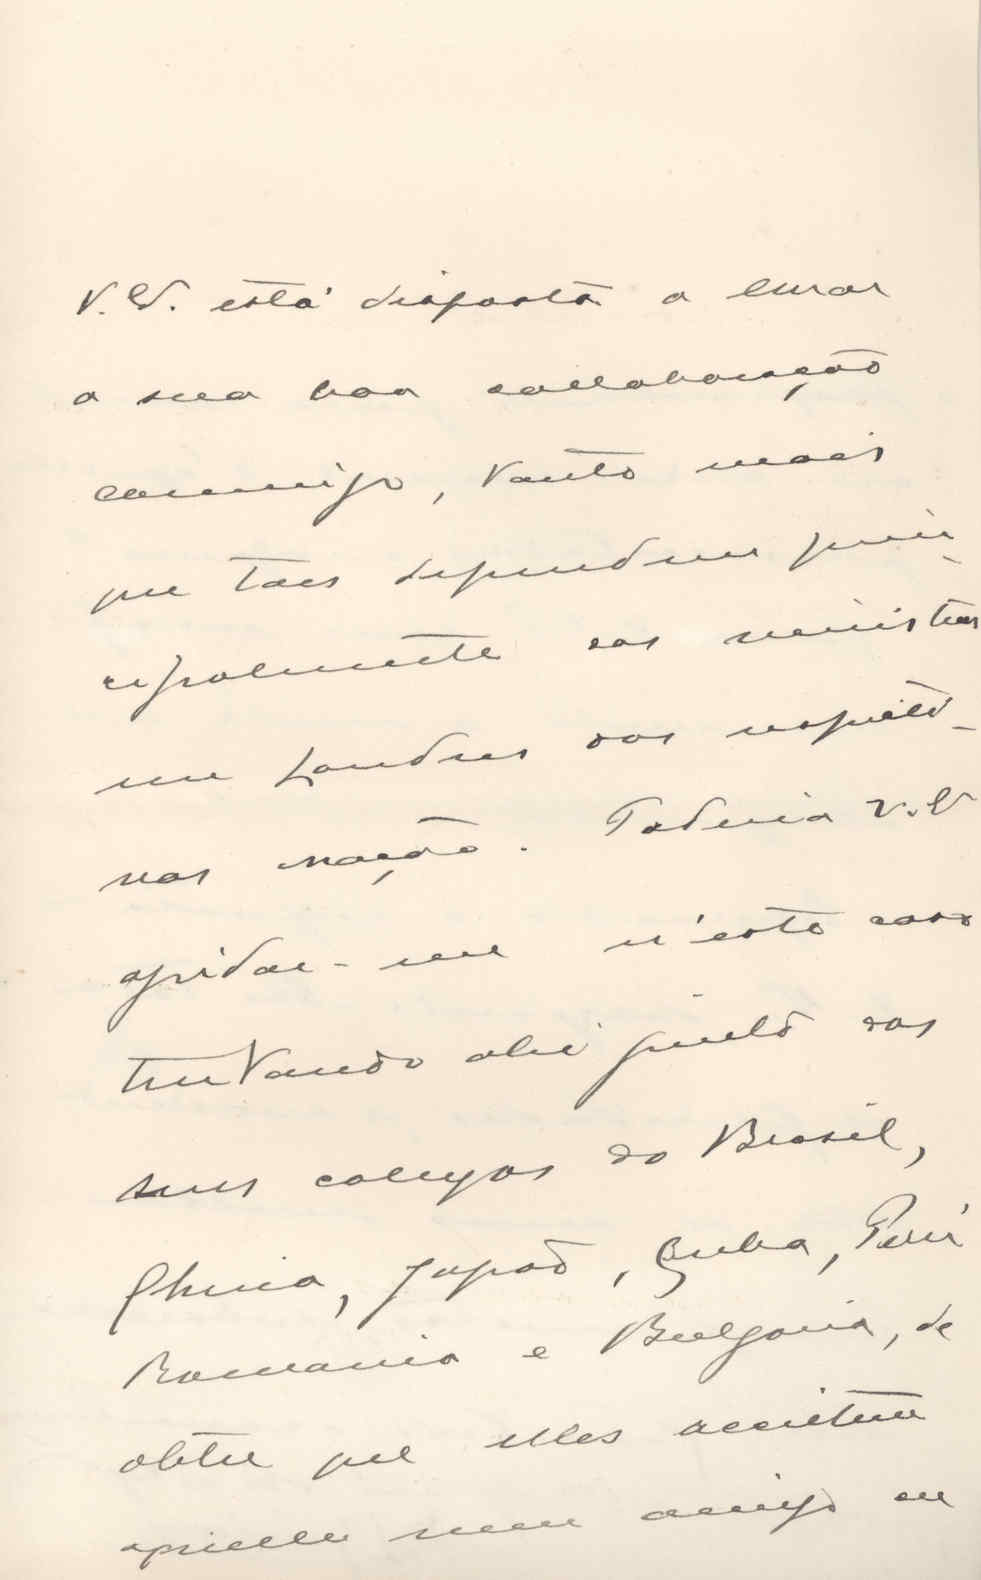 V. Ex. está disposta a
a sua boa collaboração
commigo, tanto mais
que taes dependem prin-
cipalmente dos ministros
em Londres das respecti-
vas nação. Poderia V. Ex
ajudar-me n'este caso
tentando ahi junto dos
seus collegas do Brasil,
China, Japão, Cuba, Perú
Romania e Bulgaria, de
obter que elles acceitem
aquelle meu amigo ou